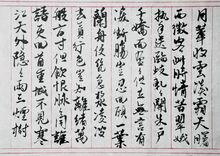 月華收雲淡霜天曙
西征客此時情苦翠娥
執手送臨歧軋軋開朱戶
千嬌面盈盈佇立無言有
淚斷腸爭忍回顧一葉
蘭舟便恁急槳凌波
去貪行色豈知離緒萬
般方寸但飲恨脈脈同誰
語更回首重城不見寒
江天外隱隱兩三煙樹